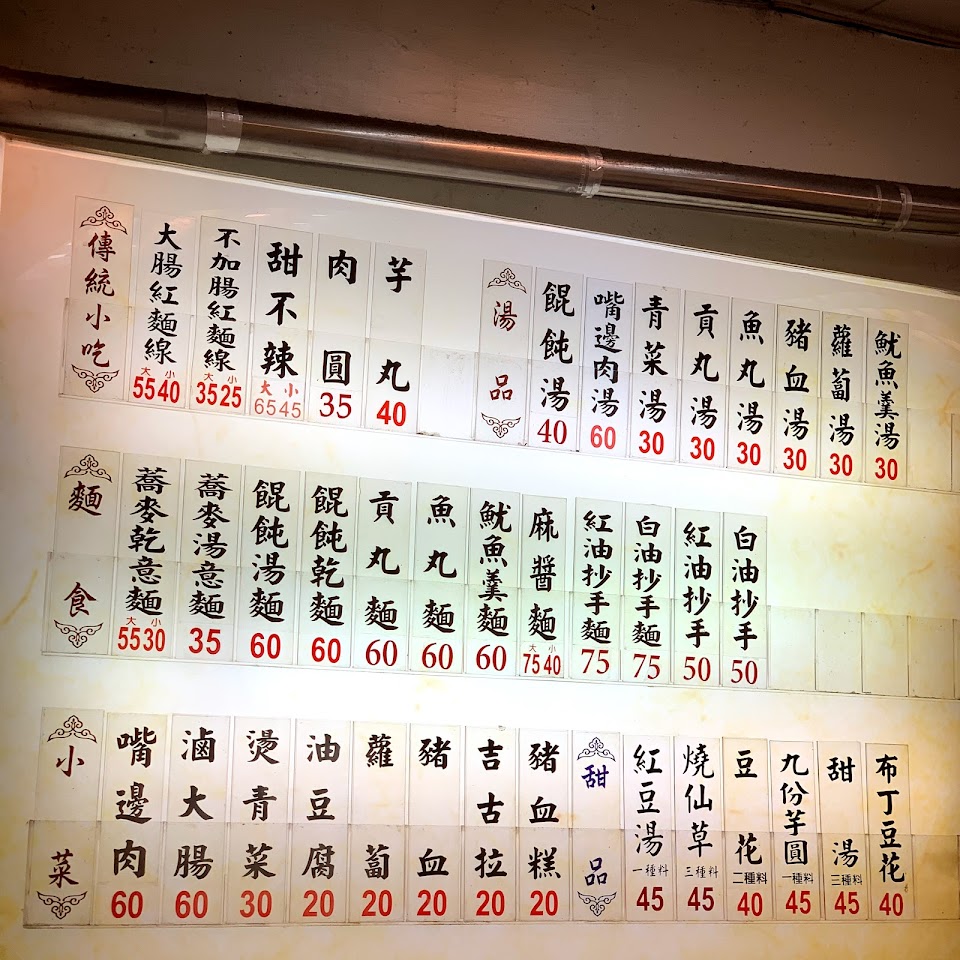 傳統小吃
大腸紅麵線 大55 小40
不加腸紅麵線 大35 小25
甜不辣 大65 小45
肉圓 35
芋丸 40
湯品
餛飩湯 40
嘴邊肉湯 60
青菜湯 30
貢丸湯 30
魚丸湯 30
豬血湯 30
蘿蔔湯 30
魷魚羹湯 30
麵食
蕎麥乾意麵 大55 小30
蕎麥湯意麵 35
餛飩湯麵 60
餛飩乾麵 60
貢丸麵 60
魚丸麵 60
魷魚羹麵 60
麻醬麵 大75 小40
紅油抄手麵 75
白油抄手麵 75
紅油抄手 50
白油抄手 50
小菜
嘴邊肉 60
滷大腸 60
燙青菜 30
油豆腐 20
蘿蔔 20
豬血 20
吉古拉 20
豬血糕 20
甜品
紅豆湯 一種料 45
燒仙草 三種料 45
豆花 二種料 40
九份芋圓 一種料 45
甜湯 三種料 45
布丁豆花 40